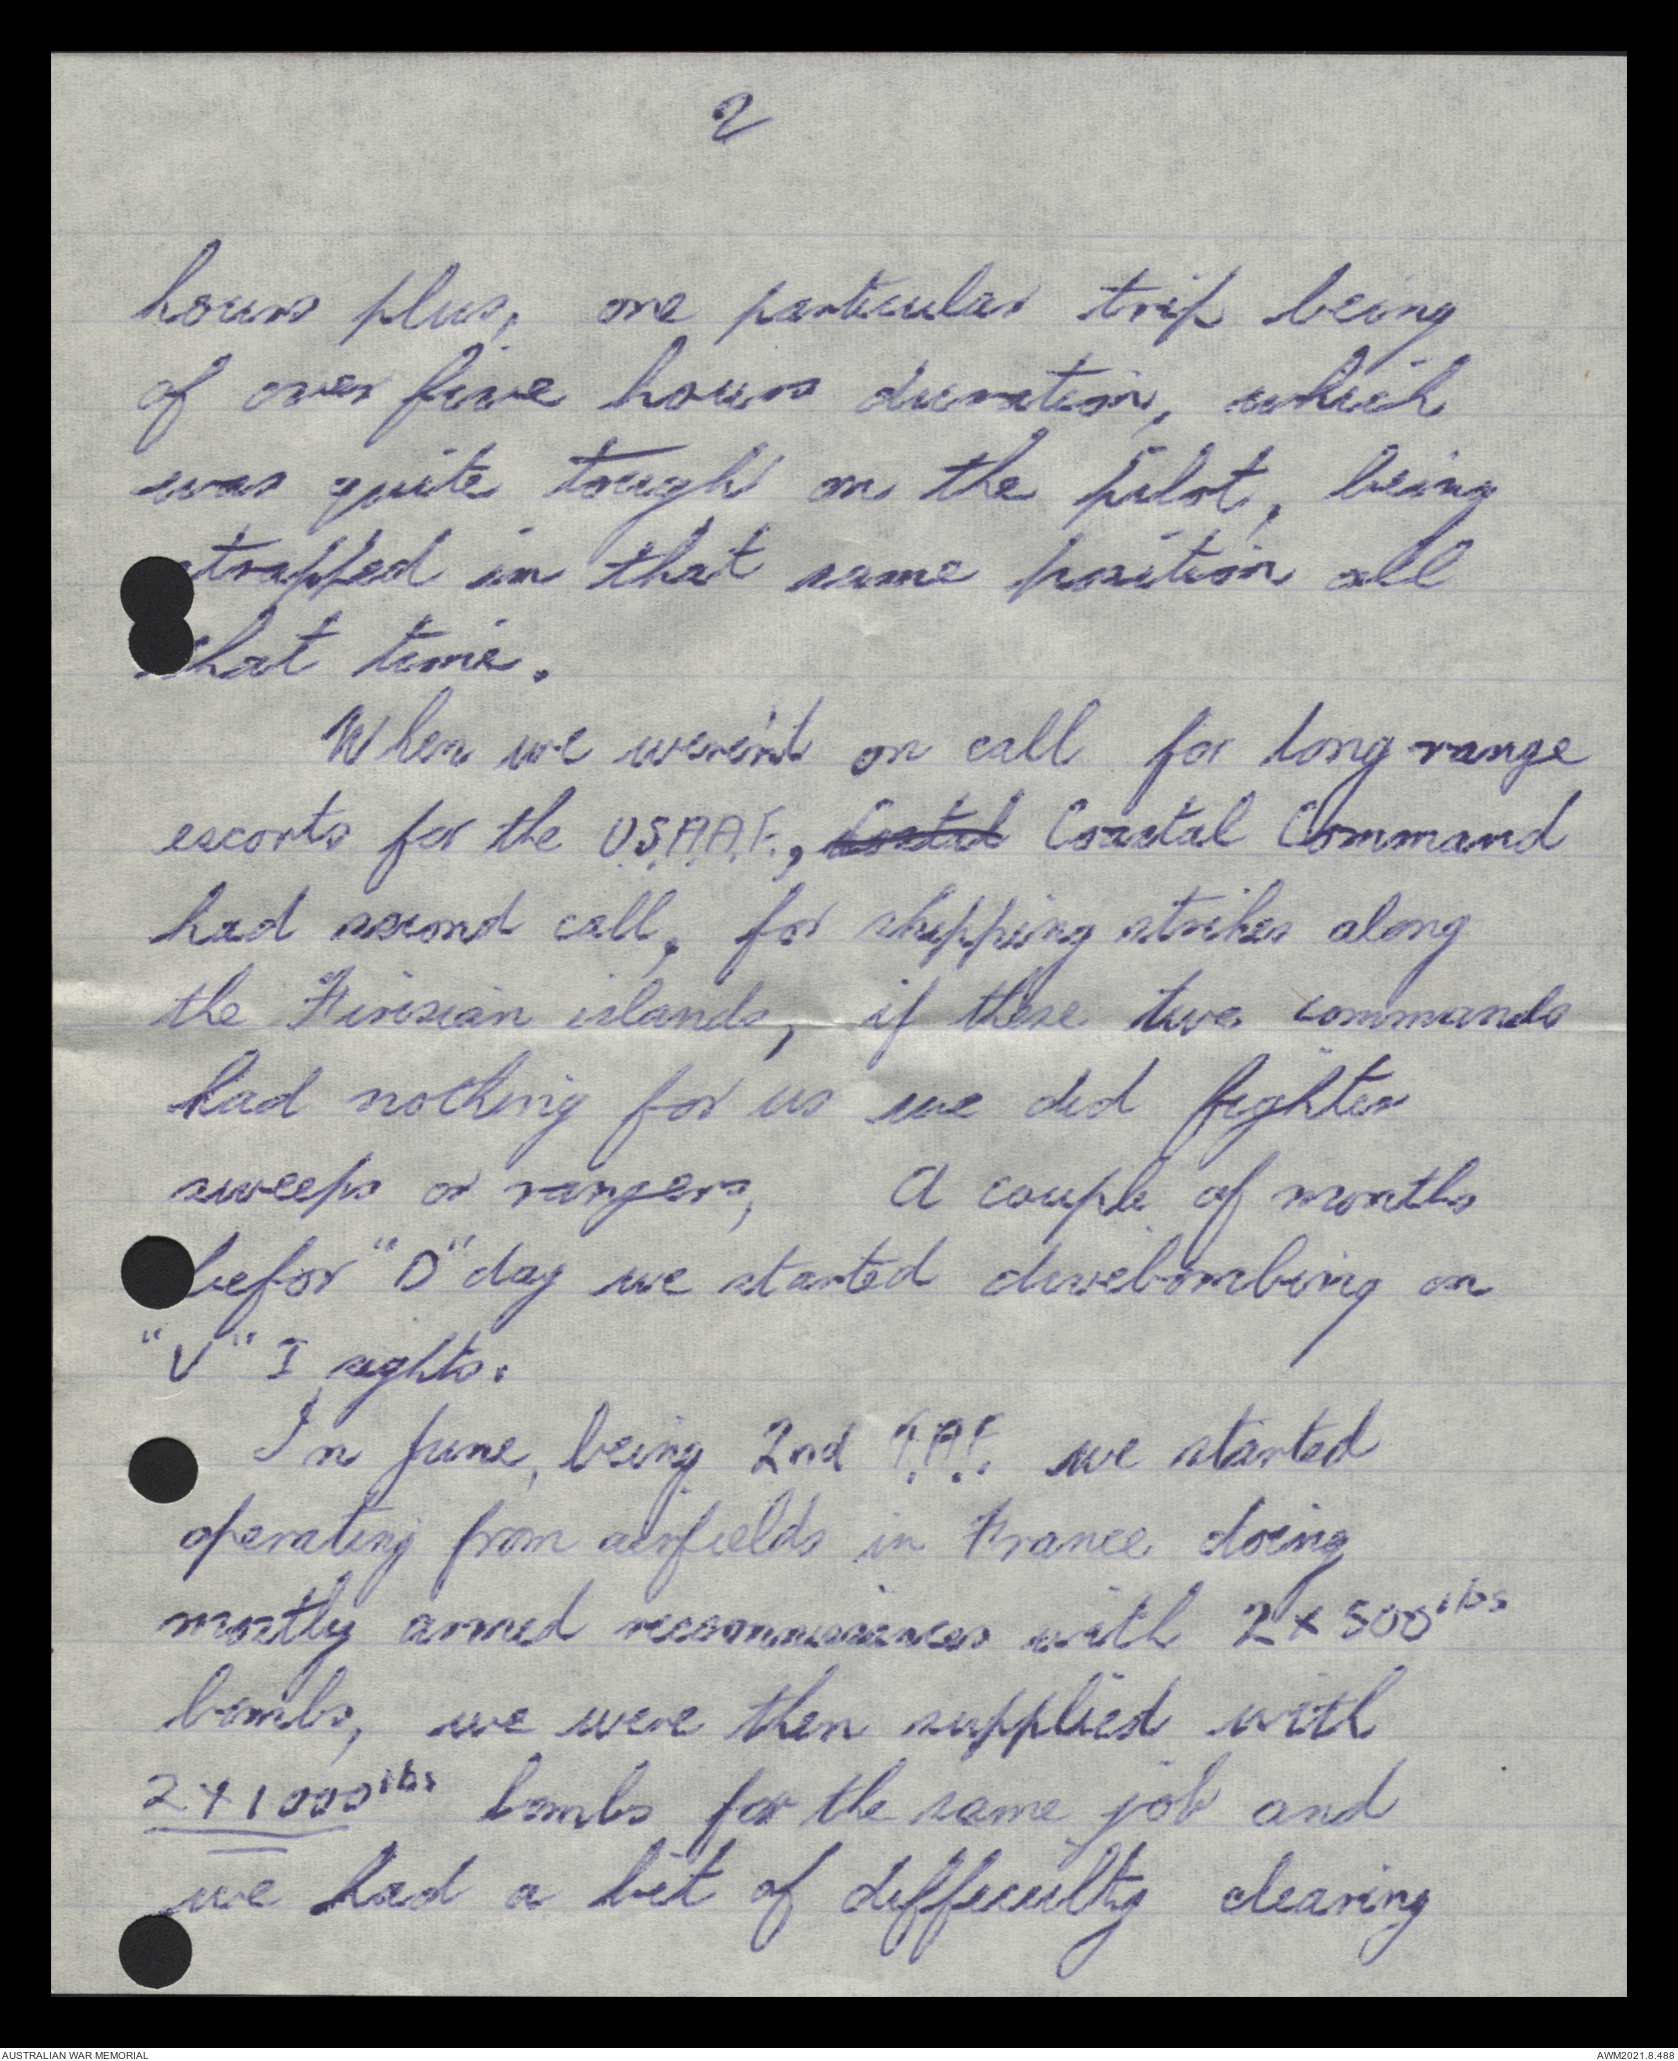 2
hours plus, one particular trip being
of over five hours duration, which
was quite tough on the pilot, being
strapped in that same position all
that time.
When we weren't on call for long range
escorts for the U.S.A.A.F., Costal Coastal Command
had second call, for shipping strikes along
the Firisian islands, if these two commands
had nothing for us we did fighter
sweeps or rangers, A couple of months
befor "D" day we started divebombing on
"V" I sights.
In June, being 2nd T.A.F. we started
operating from airfields in France doing
mostly armed with 2 x 500 lbs
bombs, we were then supplied with
2 x 1000 lbs bombs for the same job and
we had a bit of difficulty clearing
AUSTRALIAN WAR MEMORIAL
AWM2021.8.488